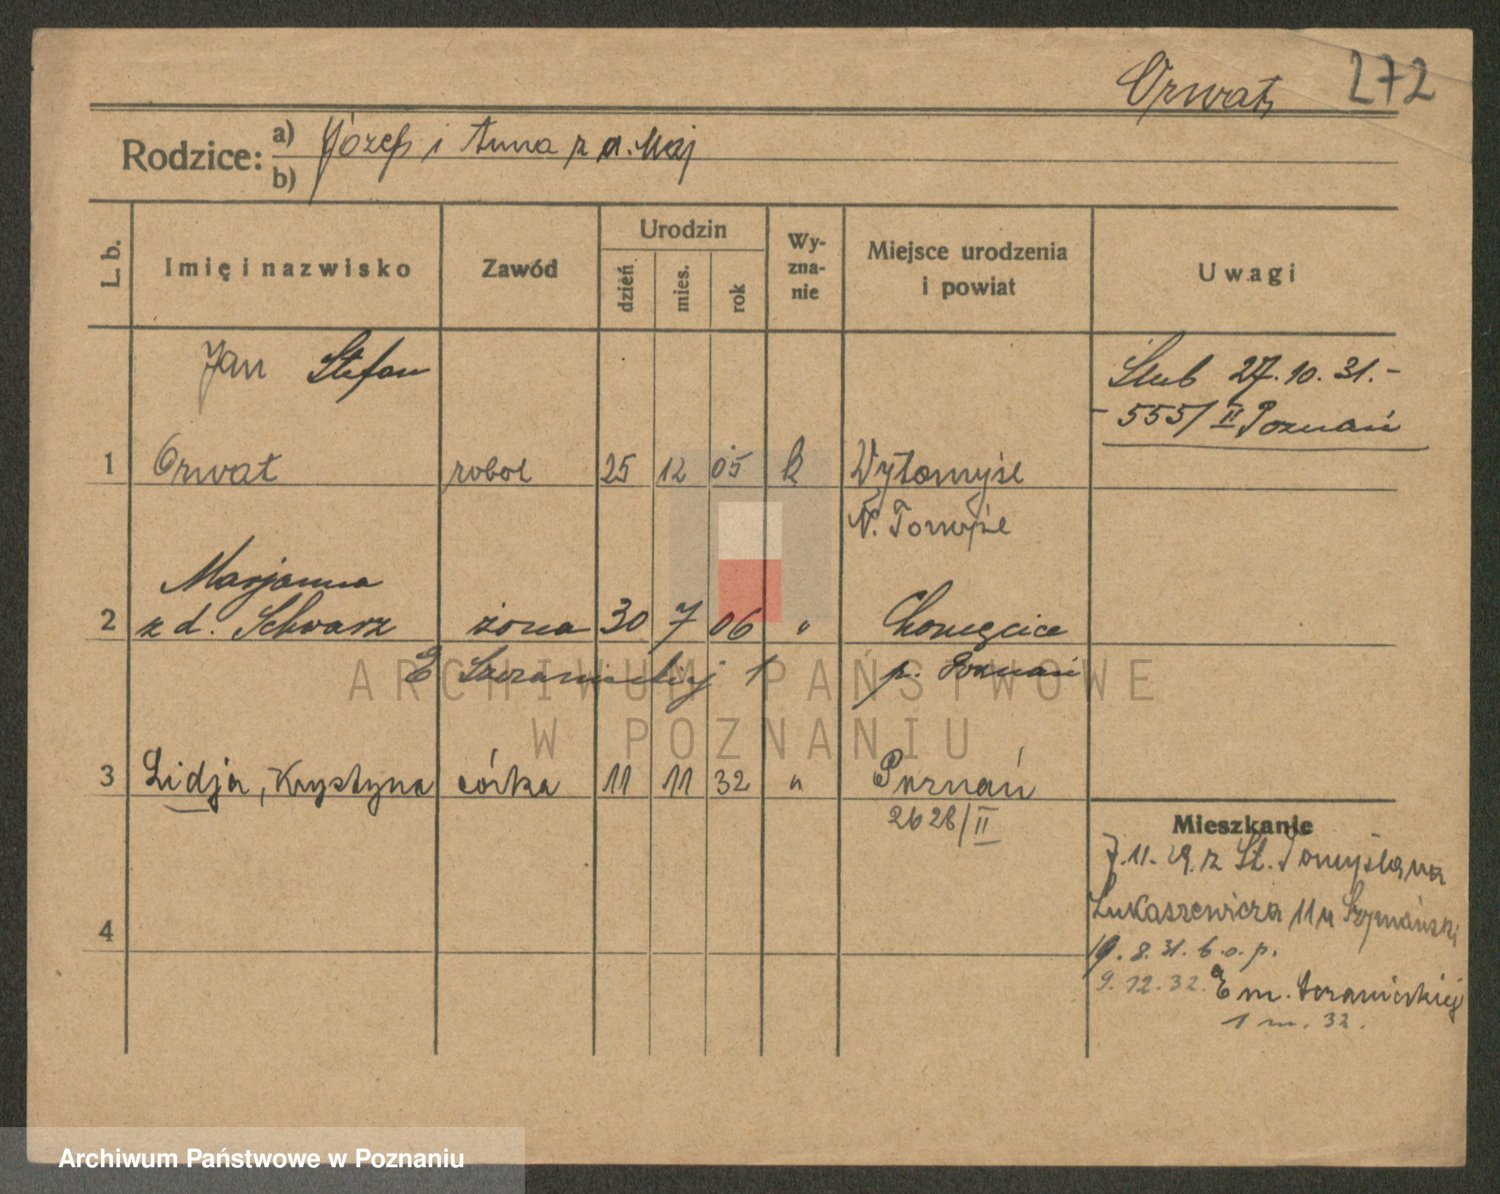 Orwat 272
Rodzice: a) Józef i Anna z d. Maj
b)
L. b.
Imię i nazwisko
Zawód
Urodzin
dzień
mies.
rok
Wy-
zna-
nie
Miejsce urodzenia
i powiat
Uwagi
Jan Stefan
Ślub 27.10.31.-
- 555/II Poznań
1 Orwat robot 25 12 05 k Wytomyśl
N. Tomyśl
Marjanna
2 z d. Schwarz żona 30 7 06 " Chomęcice
E Sczanieckiej 1 p. Poznań
3 Lidja, Krystyna córka 11 11 32 " Poznań
2628/II
4
Mieszkanie
7.11.29. z St. Tomyśla na
Łukaszewicza 11 u Szymański
19.8.31. b.o.p.
9.12.32. E m. Sczanieckiej
1 m. 32.
ARCHIWUM PAŃSTWOWE
W POZNANIU
Archiwum Państwowe w Poznaniu